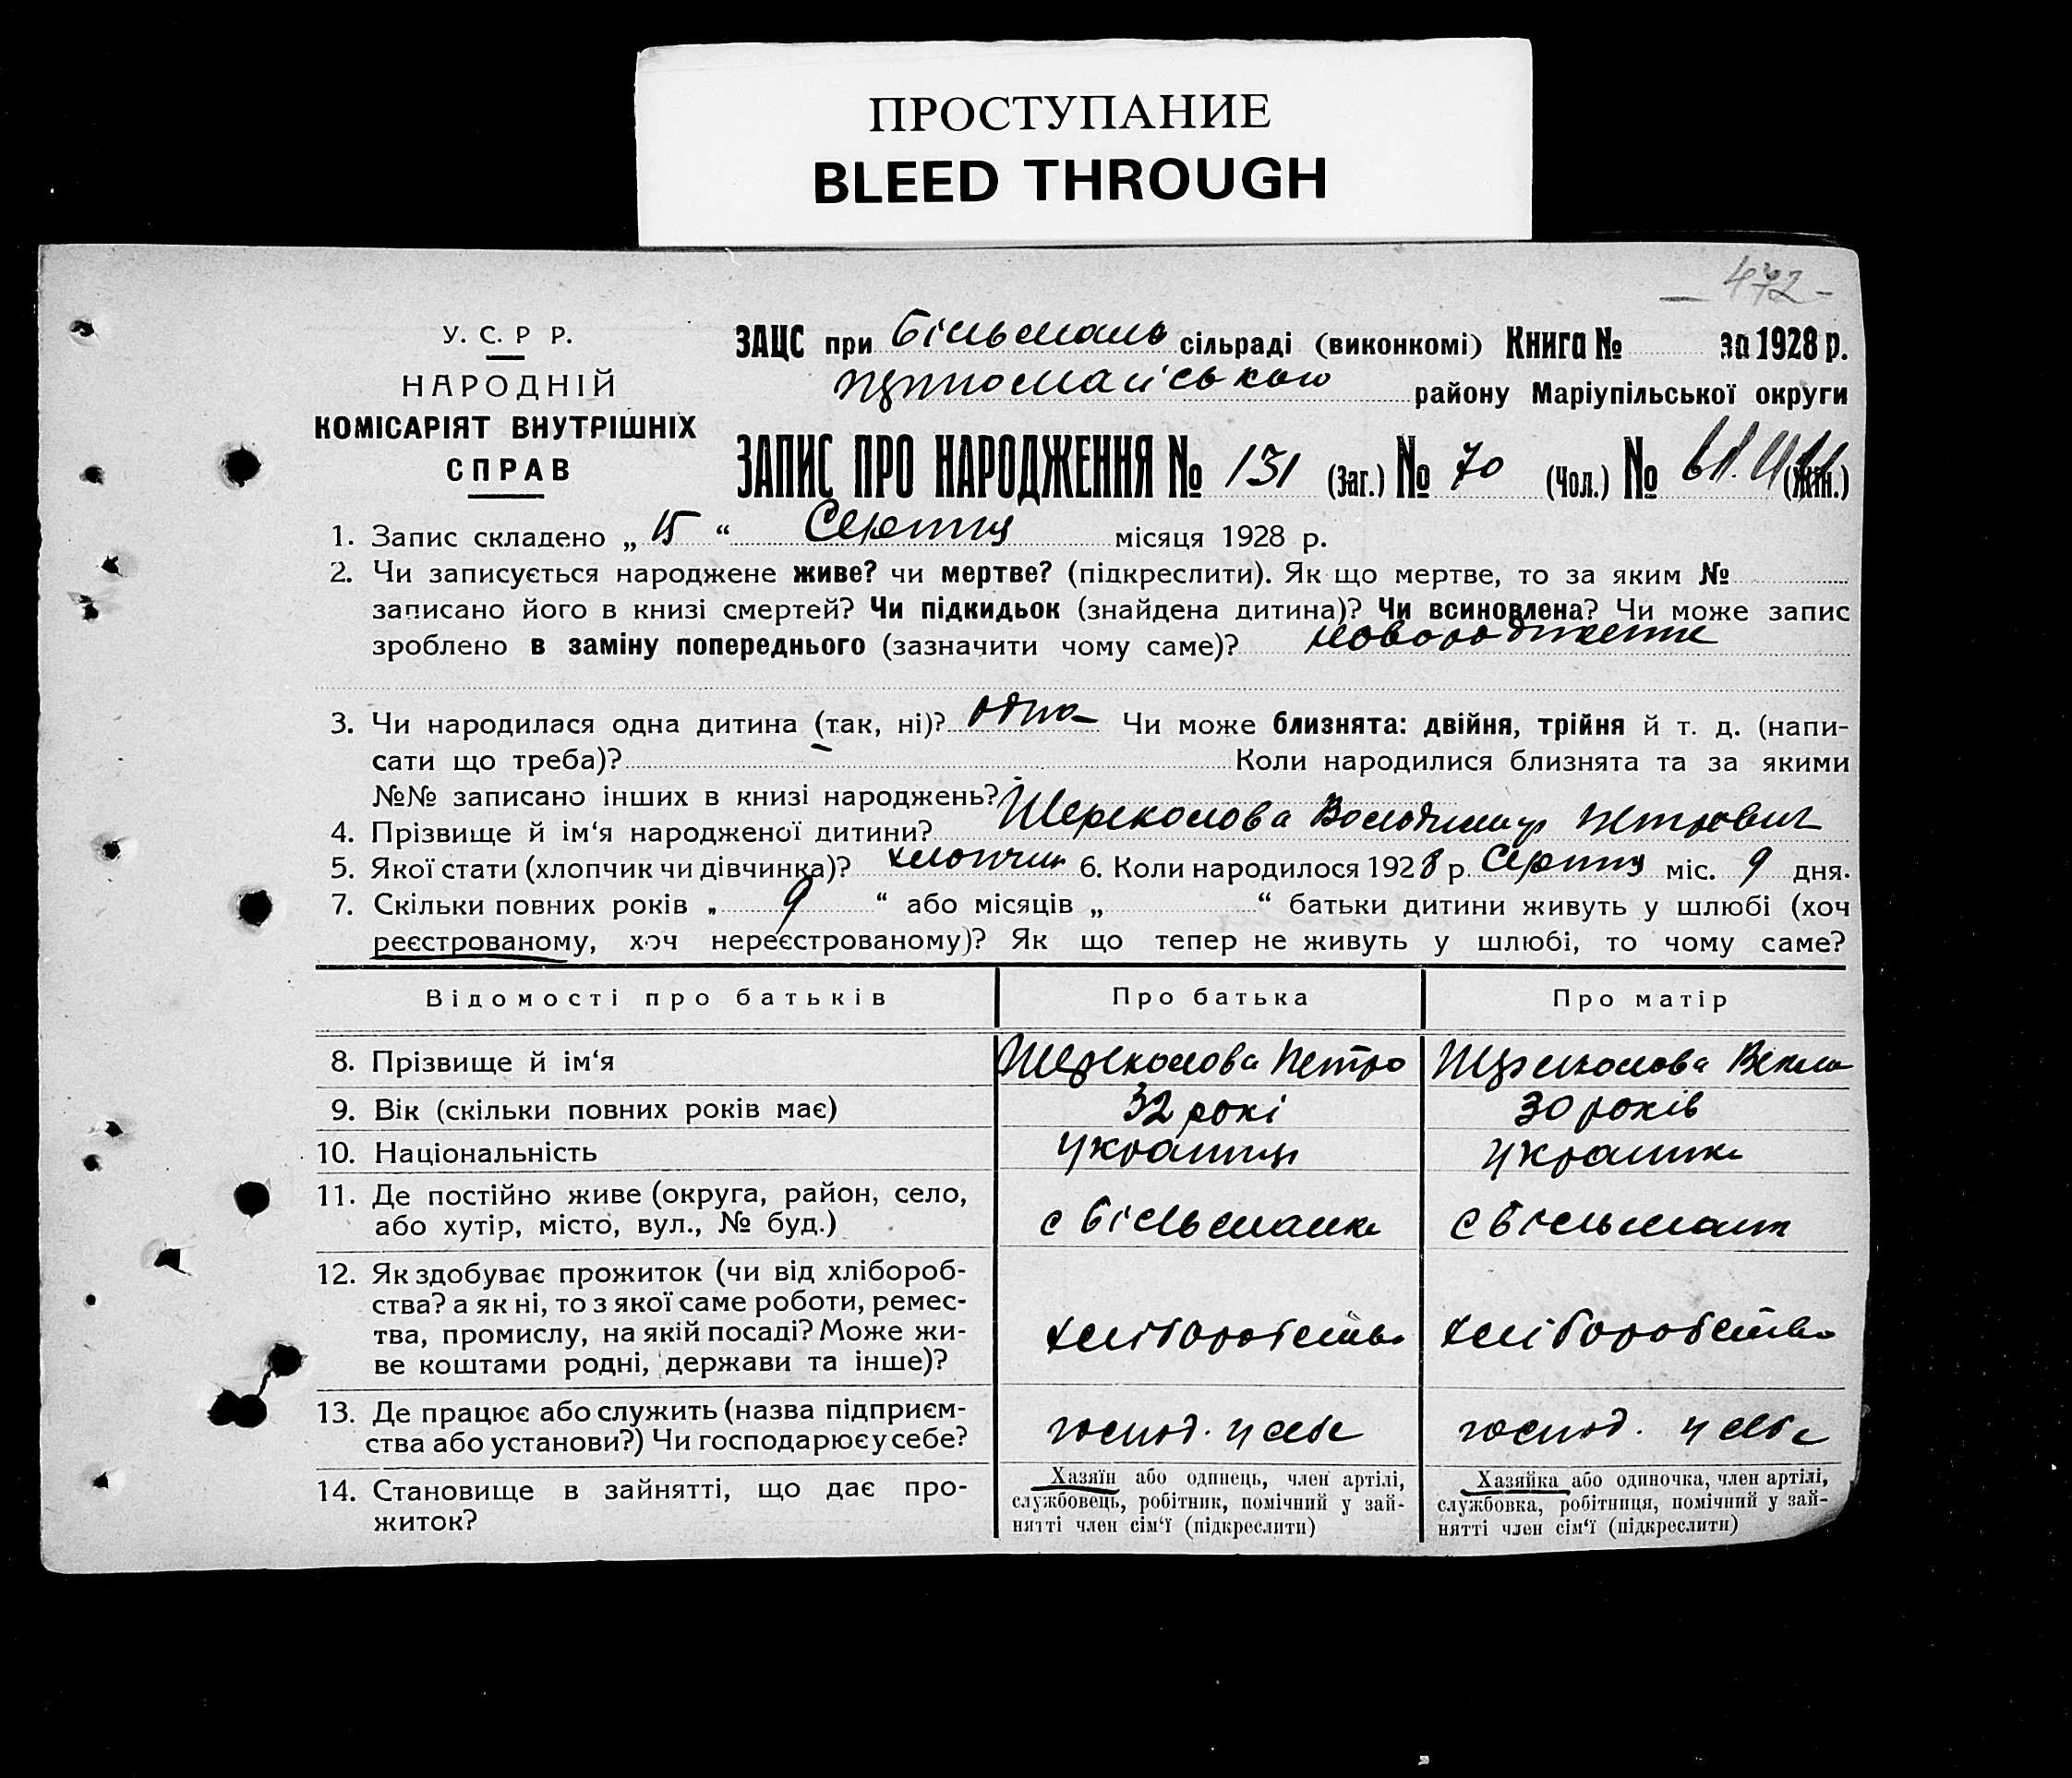 ПРОСТУПАНИЕ
BLEED THROUGH
472
У. С. Р Р.
НАРОДНІЙ
КОМІСАРІЯТ ВНУТРІШНІХ
СПРАВ
ЗАЦС при Більмань сільраді (виконкомі) Книга № за 1928 р.
району Маріупільської округи
ЗАПИС ПРО НАРОДЖЕННЯ № 131 (Заг.) № 70 (Чол.) № 61 (Жін.)
1. Запис складено „ 15 “ Серпня місяця 1928 р.
2. Чи записується народжене живе? чи мертве? (підкреслити). Як що мертве, то за яким №
записано його в книзі смертей? Чи підкидьок (знайдена дитина)? Чи всиновлена? Чи може запис
зроблено в заміну попереднього (зазначити чому саме)?
3. Чи народилася одна дитина (так, ні)? одна Чи може близнята: двійня, трійня й т. д. (напи-
сати що треба)? Коли народилися близнята та за якими
№№ записано інших в книзі народжень?
4. Прізвище й ім‘я народженої дитини? Володимир Петрович
5. Якої стати (хлопчик чи дівчинка)? хлопчик 6. Коли народилося 1928 р. Серпня міс. 9 дня.
7. Скільки повних років „ 9 “ або місяців „ “ батьки дитини живуть у шлюбі (хоч
реєстрованому, хоч нереєстрованому)? Як що тепер не живуть у шлюбі, то чому саме?
Відомості про батьків Про батька Про матір
8. Прізвище й ім‘я Петро
9. Вік (скільки повних років має) 32 рокі 30 років
10. Національність українць українка
11. Де постійно живе (округа, район, село, або хутір, місто, вул., № буд.) с Більманка с Більманк
12. Як здобуває прожиток (чи від хлібороб-
ства? а як ні, то з якої саме роботи, ремес-
тва, промислу, на якій посаді? Може жи-
ве коштами родні, держави та інше)?
хліборобство хліборобство
13. Де працює або служить (назва підприєм-
ства або установи?) Чи господарює у себе?
господ. у себе господ. у себе
14. Становище в зайнятті, що дає про-
житок?
Хазяїн або одинець, член артілі,
службовець, робітник, помічний у зай-
нятті член сім‘ї (підкреслити)
Хазяйка або одиночка, член артілі,
службовка, робітниця, помічний у зай-
нятті член сім‘ї (підкреслити)